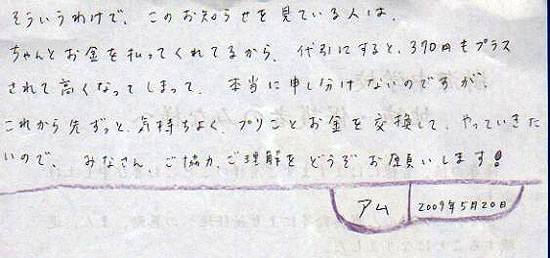 そういうわけで、このお知らせを見ている人は、
ちゃんとお金を払ってくれてるから、代引にすると、370円もプラス
されて高くなってしまって、本当に申し分けないのですが、
これから先ずっと、気持ちよく、プリごとお金を交換して、やっていきた
いので、みなさん、ご協力、ご理解をどうぞお願いします!
アム 2009年5月20日